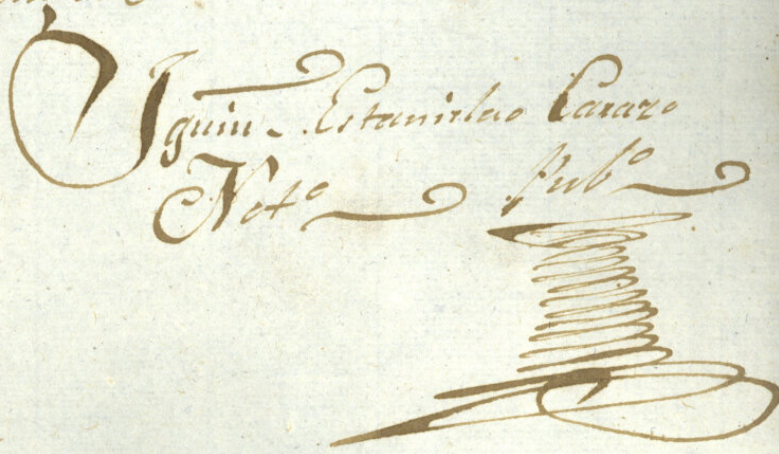 Jquin Estanislao Carazo
Noto Pubo